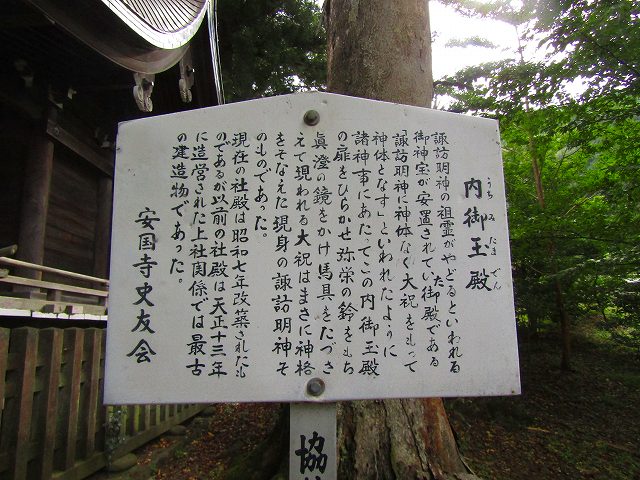 内御玉殿
うちみたまでん
諏訪明神の祖霊がやどるといわれる
御神宝が安置されていた御殿である
「諏訪明神に神体なく大祝をもって
神体となす」といわれたように
諸神事にあたてこの内御玉殿
の扉をひらかせ弥栄の鈴をもち
眞澄の鏡をかけ馬具をたづさ
えて現われる大祝はまさに神格
をそなえた現身の諏訪明神そ
のものであった。
現在の社殿は昭和七年改築されたも
のであるが以前の社殿は天正十三年
に造営された上社関係では最古
の建造物であった。
安国寺史友会
協